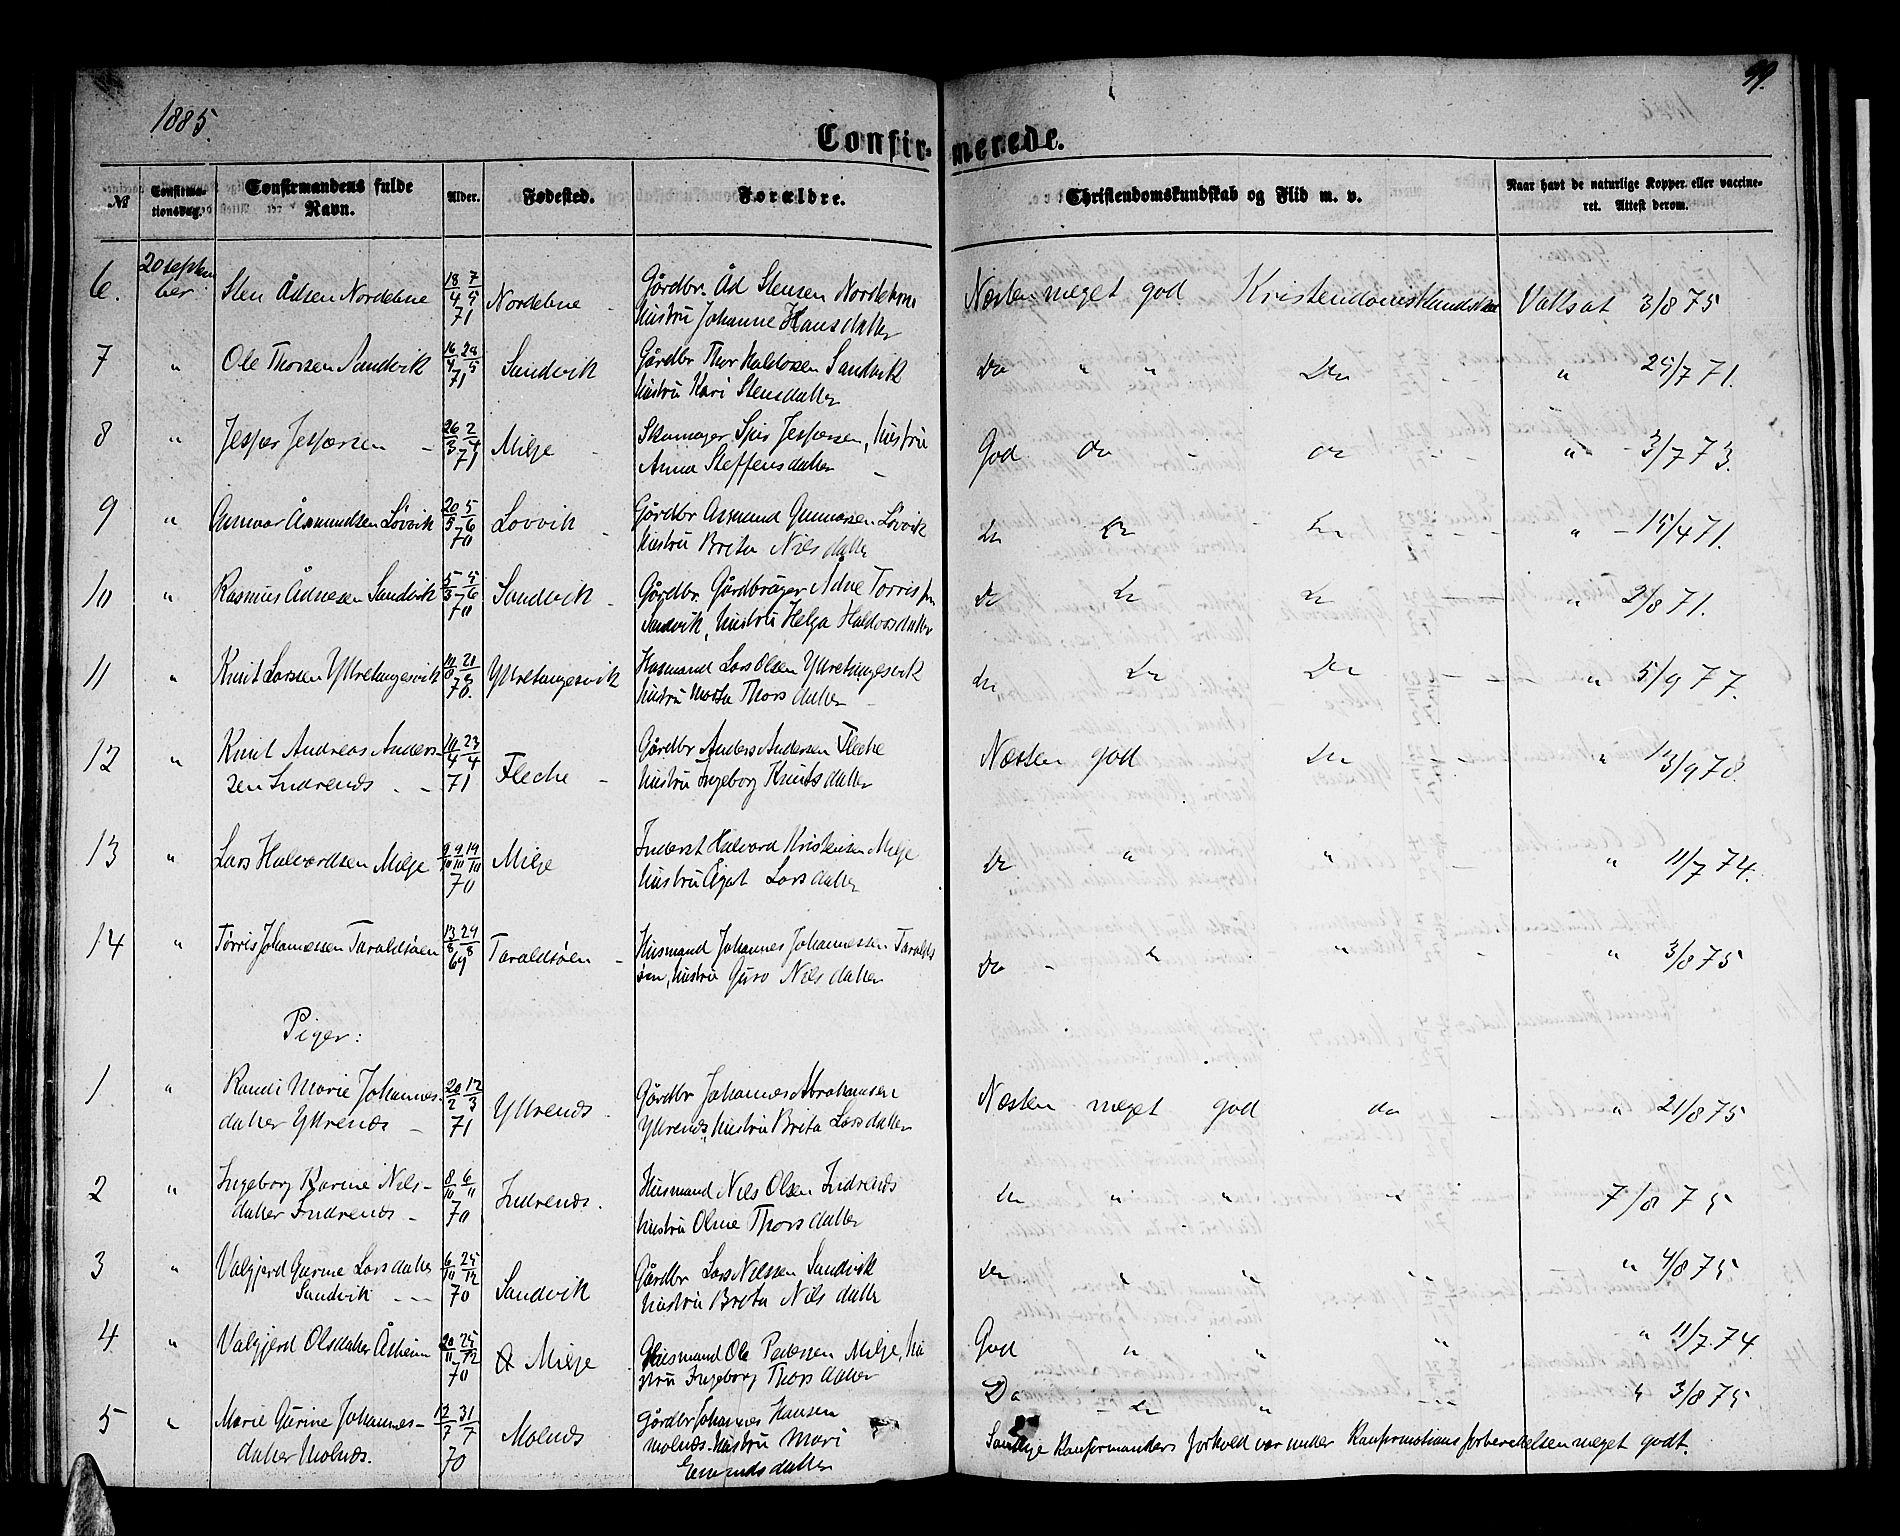 1885.
99.
Confir- merede.
№
Confirma-
tionsdag.
Confirmandens fulde
Navn.
Alder.
Fødested.
Forældre.
Christendomskundskab og Flid m. v.
Naar havt de naturlige Kopper eller vaccine-
ret. Attest derom.
6. 20 septem
ber Sten Ådsen Nordebne 18/4 7/5 71 Nordebne Gårdbr. Åd Stensen Nordebne
hustru Johanne Hansdatter Næsten meget god Kristendomskundskab Vaksat 3/8 75
7 " Ole Thorsen Sandvik 16/4 28/5 71 Sandvik Gårdbr Thor Haldorsen Sandvik
hustru Kari Stensdatter Do " " Do " 25/7 71.
8 " Jesper Jespersen - 26/3 2/4 71 Milje - Skomager Sjur Jespersen, hustru
Anna Steffensdatter - God do - do " - 3/7 73.
9 " Gunnar Åsmundsen Løvvik 20/5 5/6 70 Løvvik - Gårdbr Åsmund Gunnarsen Løvvik
hustru Brita Nilsdatter Do Do Do " - 15/4 71.
10 " Rasmus Ådnesen Sandvik 5/5 5/6 70 Sandvik - Gårdbr. Gårdbruger Ådne Torrissen
Sandvik, hustru Helga Haldorsdatter Do Do Do " 2/8 71.
11 " Knut Larsen Yttretungesvik 70. Yttretungesvik Husmand Lars Olsen Yttretungesvik
hustru Marta Thorsdatter - Do Do Do - " 5/9 77.
12 " Knut Andreas Anders-
sen Indrenæs - - 10/4 23/4 71 Fleche - Gårdbr Anders Andersen Fleche
hustru Ingeborg Knutsdatter Næsten god Do - " 13/9 78.
13 " Lars Halvardsen Milje 70 Milje Inderst Halvard Kristensen Milje
hustru Ågat Larsdatter Do " " " 11/7 74.
14 " Tørris Johannessen Taraldsøen 13/8 29/8 69 Taraldsøen - Husmand Johannes Johannessen Taralds
øen, hustru Guro Nilsdatter Do - Do " " 3/8 75
Piger:
1. " Randi Marie Johannes-
datter Yttrenæs - 20/2 12/3 71 Yttrenæs. Gårdbr Johannes Abrahamsen
Yttrenæs, hustru Brita Larsdatter Næsten meget god do - " 21/8 75
2 " Ingeborg Karine Nils-
datter Indrenæs - 8/10 6/11 70 Indrenæs. Husmand Nils Olsen Indrenæs
hustru Oline Thorsdatter Do " " " 7/8 75
3 " Valgjerd Gurine Larsdatter
Sandvik - - 6/11 25/12 70 Sandvik Gårdbr Lars Nilssen Sandvik
hustru Brita Nilsdatter Do " " " " 4/8 75
4. " Valgjerd Olsdatter Åsheim 20/11 25/12 70 Milje Husmand Ole Pedersen Milje, hu
stru Ingeborg Thorsdatter God " " " " 11/7 74
5 " Marie Gurine Johannes-
datter Molnæs. 12/7 31/7 70 Molnæs Gårdbr Johannes Hansen
Molnæs. hustru Mari
datter Do - Do " - " 3/8 75
Samtlige Konfirmanders forhold var under Konfirmationsforberedelsen meget godt.